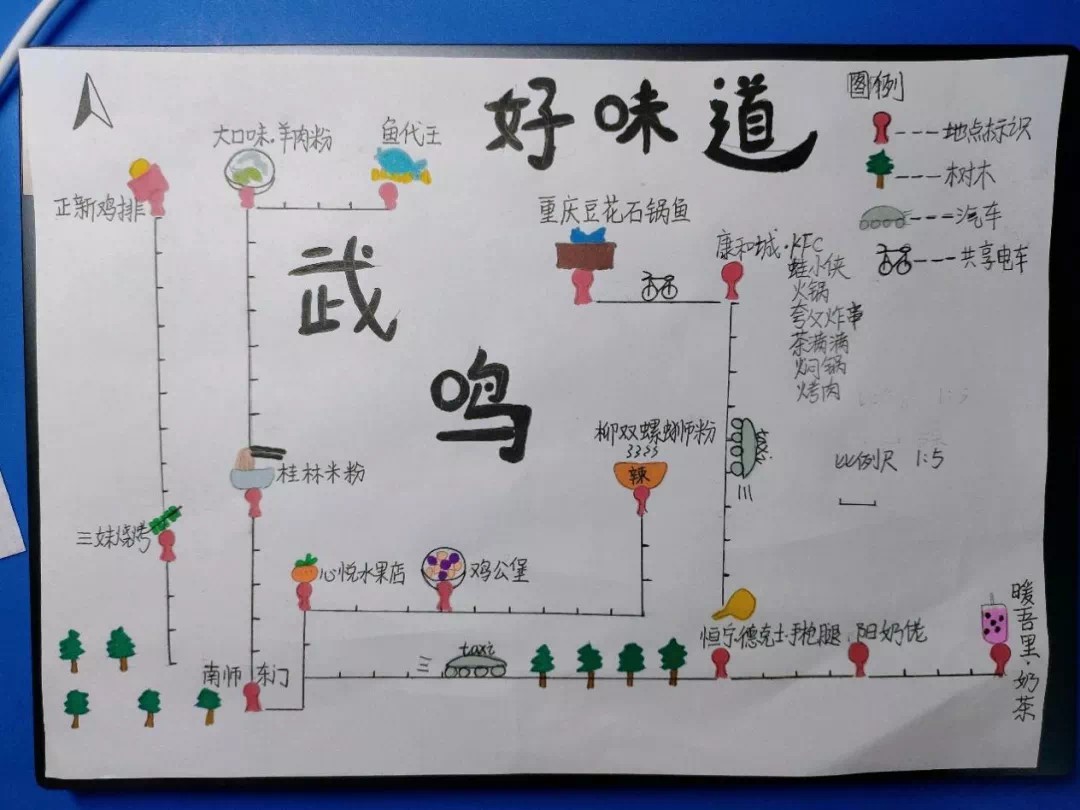 好味道
武
鸣
图例
地点标识
树木
汽车
共享电车
大口味·羊肉粉
鱼代王
正新鸡排
重庆豆花石锅鱼
康和城·KFC
蛙小侠
火锅
夸父炸串
茶滴滴
焖锅
烤肉
柳双螺蛳粉
辣
taxi
比例尺 1:5
桂林米粉
三妹烧烤
心悦水果店
鸡公堡
恒宁·德克士·手枪腿
阳奶佬
暖吾里·奶茶
taxi
南师 东门